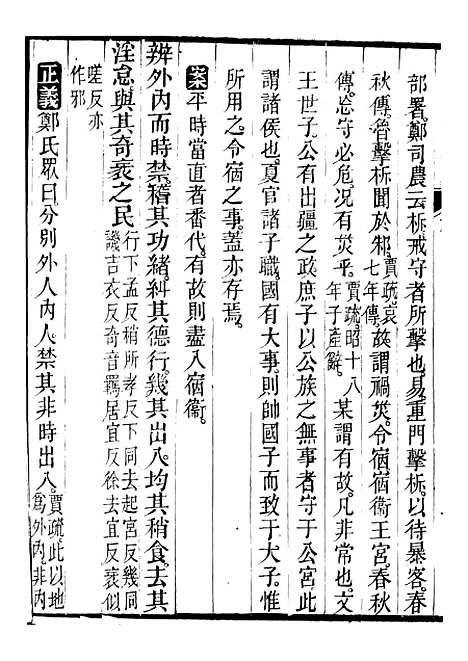 部署鄭司農云柝戒守者所擊也易重門擊柝以待暴客春
秋傳魯擊柝聞於邾賈疏哀七年傳故謂禍烖令宿宿衞王宮春秋
傳忩守必危况有烖乎賈疏昭十八年子產辭某謂有故凡非常也文
王世子公有出疆之政庶子以公族之無事者守于公宮此
謂諸侯也夏官諸子職國有大事則帥國子而致于大子惟
所用之令宿之事蓋亦存焉
案平時當直者番代有故則盡入宿衞
辨外內而時禁稽其功緒糾其德行幾其出入均其稍食去其
淫怠與其奇衺之民行下孟反稍所孝反下同去起宮反幾同譏吉衣反奇音羈居宜反徐去宜反衺似
嗟反亦作邪
正義鄭氏眾曰分別外人內人禁其非時出入賈疏此以地爲外內非內